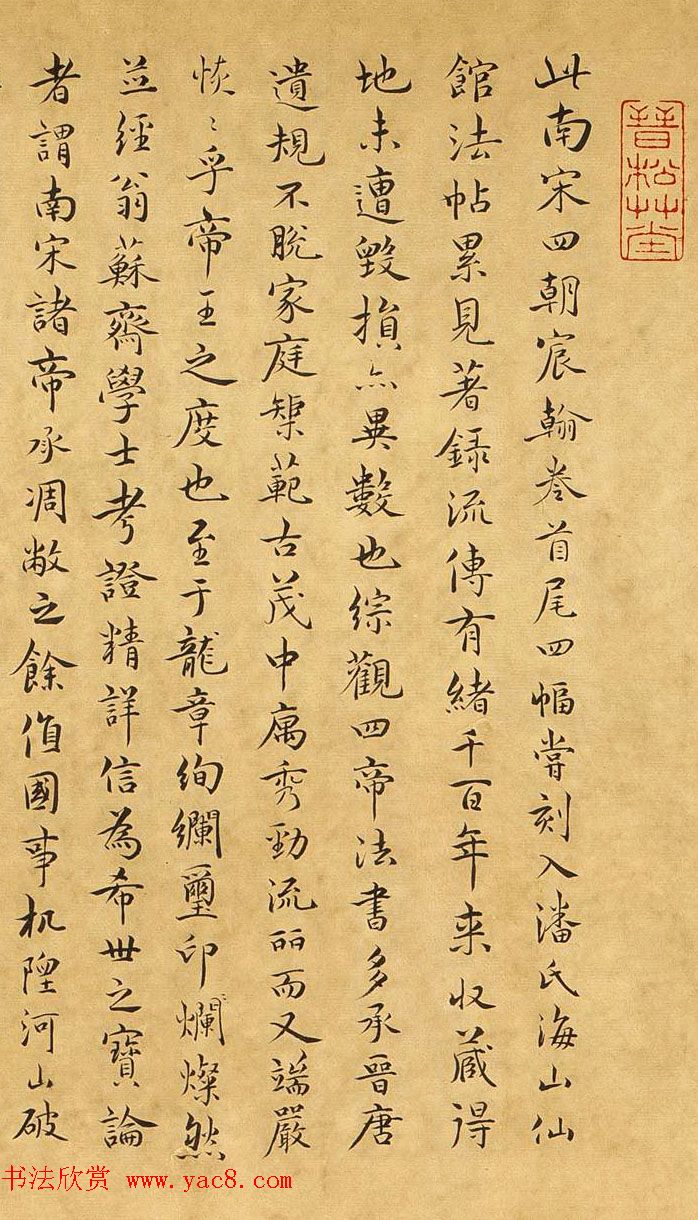 晉松草堂
此南宋四朝宸翰卷首尾四幅嘗刻入潘氏海山仙
館法帖累見著錄流傳有緒千百年來收藏得
地未遭毀損亦異數也綜觀四帝法書多承晉唐
遺規不脫家庭榘範古茂中屬秀勁流丽而又端嚴
恢〻乎帝王之度也至于龍章絢斕璽印爛燦然
並經翁蘇齋學士考證精詳信為希世之寶論
者謂南宋諸帝承凋敝之餘值國事杌隉河山破
书法欣赏 www.yac8.com